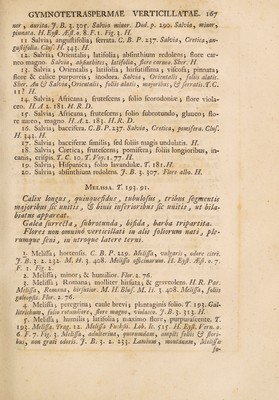 GYMNOTETRASPERMAE VERTICILLATAE. 167
nor, aurita. J. B. 3. 305. Salvia minor. Dod. p. 290. Salvia, minor,
pinnata. H. Eyst. Æst. o. 8. F. 1. Fig. 3. H.
11. Salvia; angustifolia, serrata. C. B. P. 237. Salvia, Cretica, an-
gustifolia. Clus. H. 343. H.
12. Salvia; Orientalis; latifolia; absinthium redolens; flore car-
neo magno. Salvia, absinthites, latifolia, flore carneo. Shor. H.
13. Salvia; Orientalis; latifolia; hirsutissima; viscosa; pinnata;
flore & calice purpureis; inodora. Salvia, Orientalis, foliis alatis.
Shor. An & Salvia, Orientalis, foliis alatis, majoribus, & serratis. T. C.
11? H.
14. Salvia; Africana; frutescens; folio scorodoniae; flore viola-
ceo. H. A. 2. 181. H. R. D.
15. Salvia; Africana; frutescens; folio subrotundo, glauco; flo-
re aureo, magno. H. A. 2. 183. H. R. D.
16. Salvia; baccifera. C. B. P. 237. Salvia, Cretica, pomifera. Clus.
H. 343. H.
17. Salvia; bacciferae similis; sed foliis magis undulatis. H.
18. Salvia; Cretica; frutescens; pomifera; foliis longioribus, in-
canis, crispis. T. C. 10. T. Voy. 1. 77. H.
19. Salvia; Hispanica; folio lavandulae. T. 181. H.
20. Salvia; absinthium redolens. J. B. 3. 307. Flore albo. H.
MELISSA. T. 193. 91.
Calix longus, quinquefidus, tubulosus, tribus segmentis
majoribus sic unitis, & binis inferioribus sic unitis, ut bila-
biatum appareat.
Galea surrecta, subrotunda, bifida, barba tripartita.
Flores non omnino verticillati in alis foliorum nati, ple-
rumque seni, in utroque latere terni.
1. Melissa; hortensis. C. B. P. 229. Melissa, vulgaris, odore citri.
J. B. 3. 2. 232. M. H. 3. 408. Melissa officinarum. H. Eyst. Æst. o. 7.
F. 1. Fig. 2.
2. Melissa; minor; & humilior. Flor. 2. 76.
3. Melissa; Romana; mollitèr hirsuta; & graveolens. H. R. Par.
Melissa, Romana, hirsutior. M. H. Blaes. M. H. 3. 408. Melissa, foliis
galeopsis. Flor. 2. 76.
4. Melissa; peregrina; caule brevi; plantaginis folio. T. 193. Gal-
litrichum, folio rotundiore, flore magno, violaceo. J. B. 3. 313. H.
5. Melissa; humilis; latifolia; maximo flore, purpurascente. T.
193. Melissa. Trag. 12. Melissa Fuchsii. Lob. Ic. 515. H. Eyst. Vern. o.
6. F. 7. Fig. 3. Melissa, adulterina, quorundam, amplis foliis & flori-
bus, non grati odoris. J. B. 3. 2. 233. Lamium, montanum, Melissæ
fo-